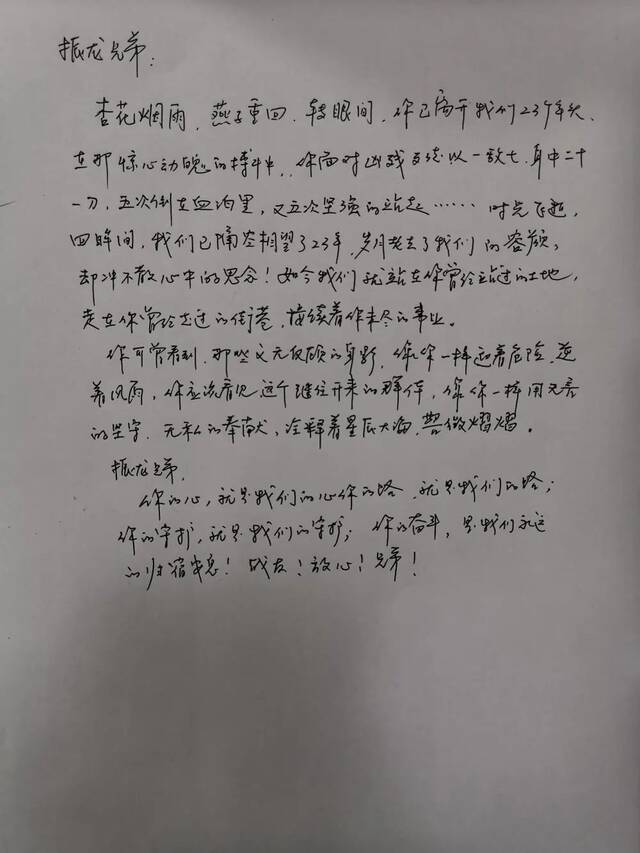 振龙兄弟：
杏花烟雨，燕子重回，转眼间，你已离开我们23个年头，
在那惊心动魄的搏斗中，你面对凶残歹徒以一敌七，身中二十
一刀，五次倒在血泊里，又五次坚强的站起……时光飞逝，
回眸间，我们已隔空相望了23年，岁月老去了我们的容颜，
却冲不散心中的思念！如今我们就站在你曾经站过的土地，
走在你曾经走过的街巷，接续着你未尽的事业。
你可曾看到，那些义无反顾的身影，像你一样迎着危险，逆
着风雨，你应该看见这个继往开来的群体，像你一样用无言
的坚守，无私的奉献，诠释着星辰大海，警徽熠熠。
振龙兄弟，
你的心，就是我们的心你的路，就是我们的路；
你的守护，就是我们的守护；你的奋斗，是我们永远
的归宿！战友！放心！兄弟！